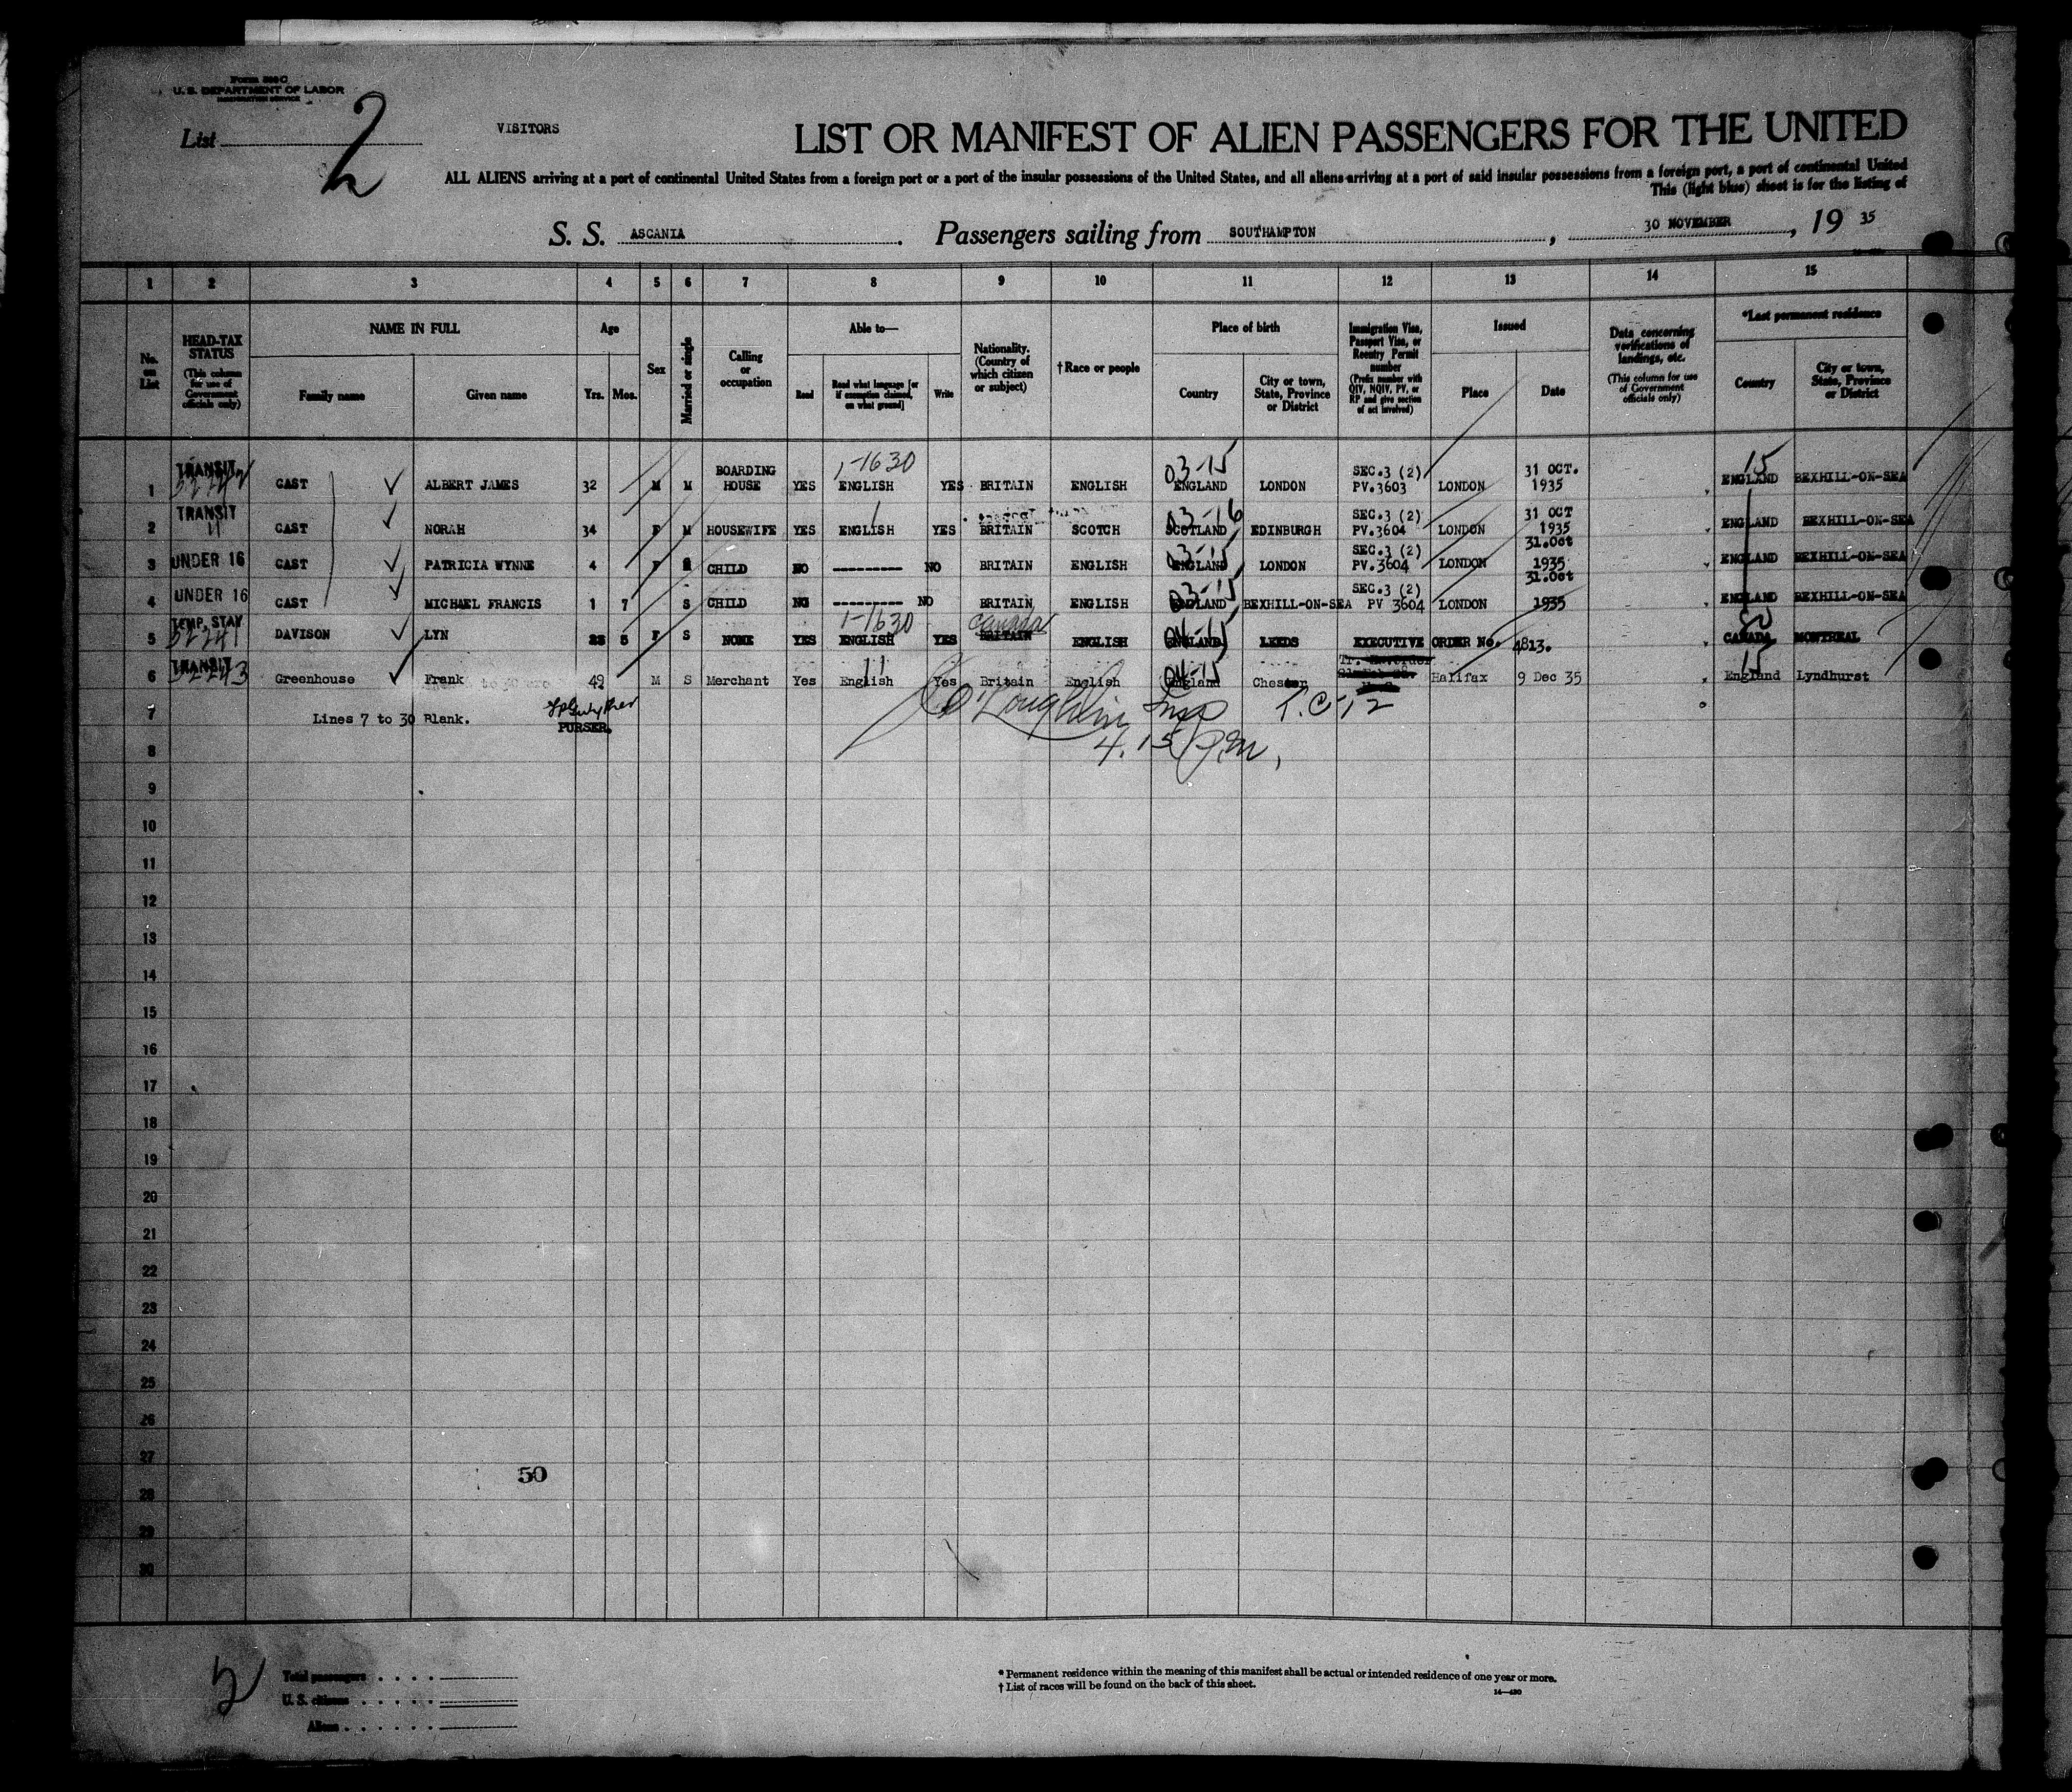 Form 500 C
U. S. DEPARTMENT OF LABOR
IMMIGRATION SERVICE
List 2
VISITORS
LIST OR MANIFEST OF ALIEN PASSENGERS FOR THE UNITED
ALL ALIENS arriving at a port of continental United States from a foreign port or a port of the insular possessions of the United States, and all aliens arriving at a port of said insular possessions from a foreign port, a port of continental United
This (light blue) sheet is for the listing of
S. S. ASCANIA. Passengers sailing from SOUTHAMPTON, 30 NOVEMBER, 19 35
1 2 3 4 5 6 7 8 9 10 11 12 13 14 15
No. on List
HEAD-TAX STATUS
(This column for use of Government officials only)
NAME IN FULL
Family name
Given name
Age
Yrs. Mos.
Sex
Married or single
Calling or occupation
Able to—
Read
Read what language [or if exemption claimed, on what ground]
Write
Nationality. (Country of which citizen or subject)
†Race or people
Place of birth
Country
City or town, State, Province or District
Immigration Visa, Passport Visa, or Reentry Permit number
(Prefix number with QIV, NQIV, PV, or RP and give section of act involved)
Issued
Place
Date
Data concerning verifications of landings, etc.
(This column for use of Government officials only)
*Last permanent residence
Country
City or town, State, Province or District
1 TRANSIT CAST ALBERT JAMES 32 M M BOARDING HOUSE YES 1-1630 ENGLISH YES BRITAIN ENGLISH 03-15 ENGLAND LONDON SEC.3 (2) PV.3603 LONDON 31 OCT. 1935 15 ENGLAND BEXHILL-ON-SEA
2 TRANSIT " CAST NORAH 34 F M HOUSEWIFE YES ENGLISH YES BRITAIN SCOTCH 03-16 SCOTLAND EDINBURGH SEC.3 (2) PV.3604 LONDON 31 OCT 1935 ENGLAND BEXHILL-ON-SEA
3 UNDER 16 CAST PATRICIA WYNNE 4 F S CHILD NO ---------- NO BRITAIN ENGLISH 03-15 ENGLAND LONDON SEC.3 (2) PV.3604 LONDON 31.Oct 1935 ENGLAND BEXHILL-ON-SEA
4 UNDER 16 CAST MICHAEL FRANCIS 1 7 S CHILD NO ---------- NO BRITAIN ENGLISH 03-15 ENGLAND BEXHILL-ON-SEA SEC.3 (2) PV 3604 LONDON 31.Oct 1935 ENGLAND BEXHILL-ON-SEA
5 TEMP. STAY 52241 DAVISON LYN 5 F S NONE YES 1-1630 ENGLISH YES Canada BRITAIN ENGLISH 04-15 ENGLAND LEEDS EXECUTIVE ORDER No. 4813. CANADA MONTREAL
6 TRANSIT 52243 Greenhouse Frank 49 M S Merchant Yes English Yes Britain English 04-15 England Chester Halifax 9 Dec 35 15 England Lyndhurst
7 Lines 7 to 30 Blank. PURSER.
O'Loughlin Insp T.C-12
4.15 P.M.
8
9
10
11
12
13
14
15
16
17
18
19
20
21
22
23
24
25
26
27
50
28
29
30
Total passengers
U. S. citizens
Aliens
* Permanent residence within the meaning of this manifest shall be actual or intended residence of one year or more.
† List of races will be found on the back of this sheet.
14—430